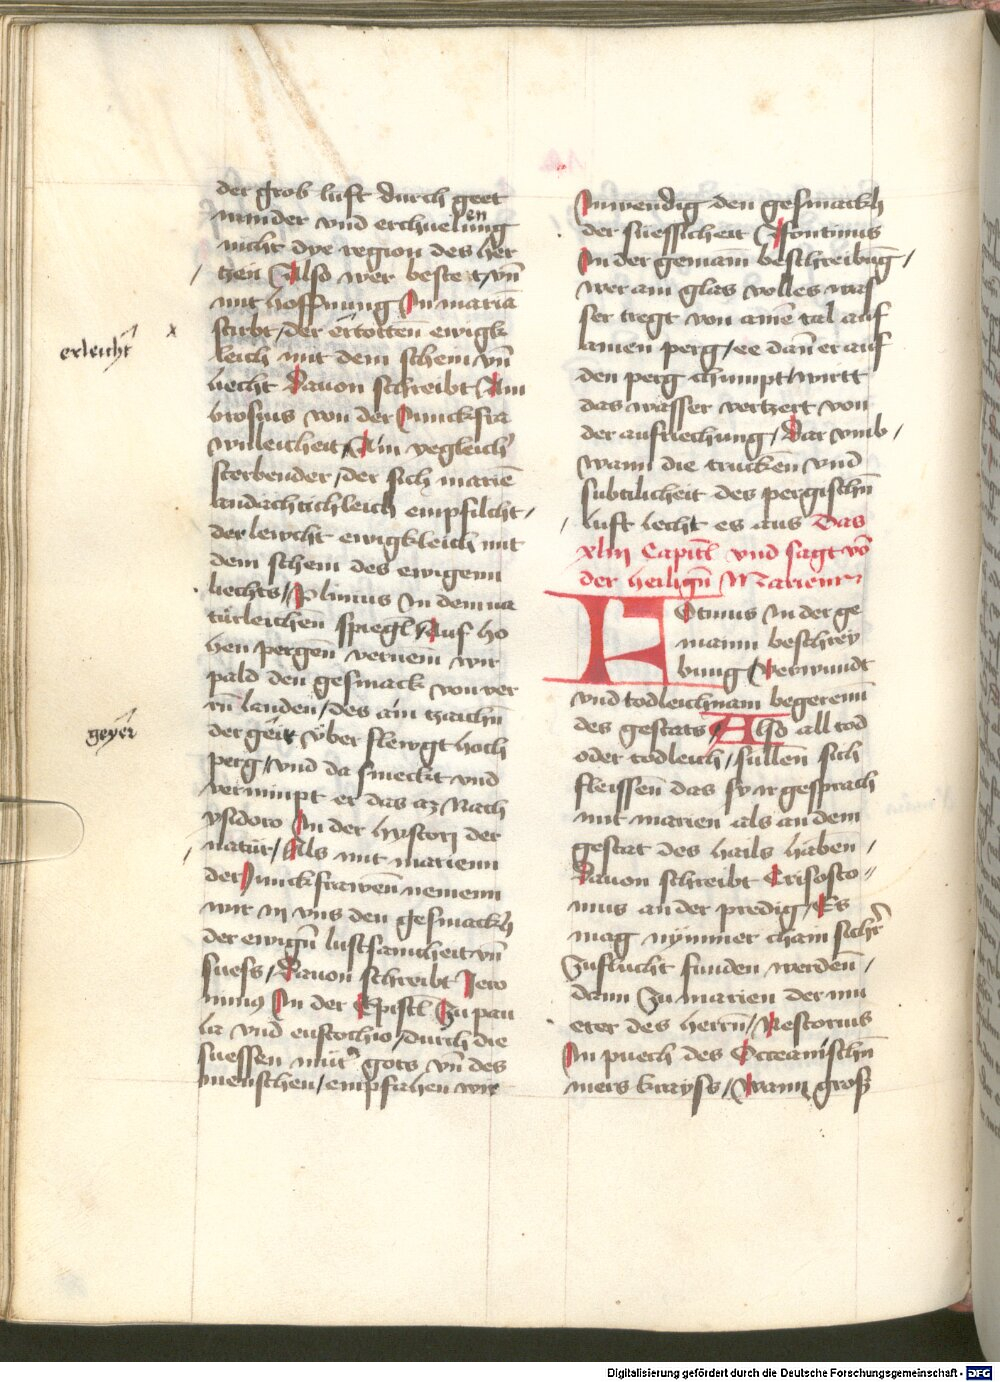 der grob luft durch geet
mynder vnd erchuelen˖ung
nicht dye region des her
tzen Also wer bestert / vn̄
mit hoffnung In maria
stirbt / der ertotten ewigk
leich mit dem schein vn̄
liecht Dauon schreibt Am
brosius von der Iunckfra
wnleicheit / Ain yegleich˜
sterbender / der sich mariē
andachtichleich empfilcht /
der lewcht ewigkleich mit
dem schein des ewigenn
liechts / Plinius In dem na
türleichen spiegl / Auf ho
hen pergen vernem wir
pald den gesmack von ver
rn̄ landen / des ain tzaichn̄
der geir über flewgt hoch
perg / vnd da smeckt vnd
vernimpt er das az Nach
ysidoro In der hystorj der
natur / Als mit marienn
der Iunckfrawen nemenn
wir in vns den gesmackh
der ewign̄ lustsamcheit vn̄
suess / Dauon schreibt Jero
nimus In der Epistl Zu pau
la vnd eustochio / durch die
suessen mut˜ gots vn̄ des
menschen / empfahen wir
erleicht
x
geyer
Inwendig den gesmackh
der suessicheit Fontinus
In der gemain beschreibūg /
wer am glas volles was
ser tregt von aīnē tal auf
ainen perg / ee dan̄ er auf
den perg chumpt / wirtt
das wasser vertzert von
der aufriechung / Dar vmb /
wann die trucken vnd
subtilicheit des pergischn̄
luft lecht es aus Das
xliij Capitl vnd sagt vō
der heilign̄ Marienn
Fotinus In der ge
mainn beschrey
bung / Verwundt
vnd todleichnam begerenn
des gestats / Also all tod
oder todleich / sullen sich
fleissen das sy ir gesprach
mit marien als an dem
gestat des hails haben /
Dauon schreibt Crisosto=
mus an der predig / Es
mag nymmer chain sich˜r
Zuflucht funden werden /
dann Zu marien der mu
eter des herrn̄ / Nestorius
Im puech des Occeanischn̄
mers krayss / Wann gross
Digitalisierung gefördert durch die Deutsche Forschungsgemeinschaft - DFG